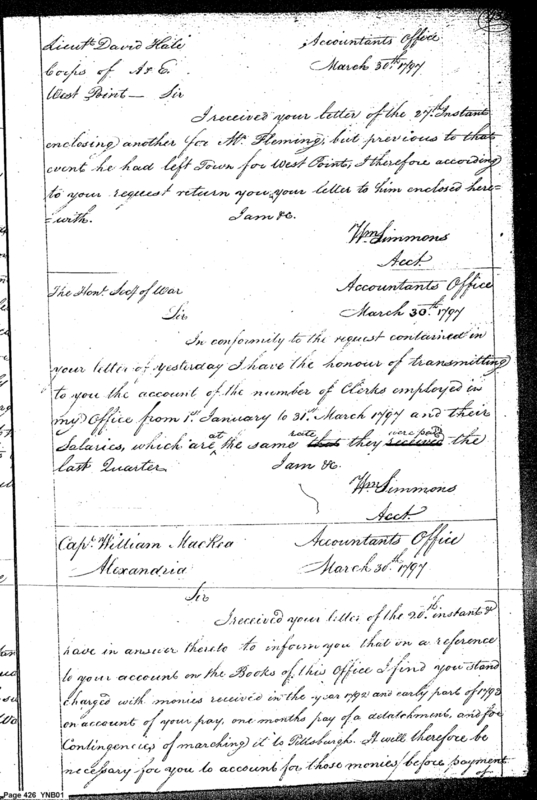 Lieut. David Hale
Accountants Office
Corps of A & E.
March 30th. 1797
West Point — Sir
I received your letter of the 27th. Instant
enclosing another for Mr. Fleming, but previous to that
event he had left Town for West Point, I therefore according
to your request return you your letter to him enclosed here=
=with. I am &c.
Wm Simmons
Acct.
Accountants Office
The Honl. Secy of War
March 30th. 1797
Sir
In conformity to the request contained in
your letter of yesterday I have the honour of transmitting
to you the account of the number of Clerks employed in
my Office from 1st. January to 31st March 1797 and their
Salaries, which are at the same rate that they were paid received the
last Quarter I am &c.
Wm Simmons
Acct.
Capt. William MacRea
Accountants Office
Alexandria
March 30th. 1797
Sir
I received your letter of the 20th. instant &
have in answer thereto to inform you that on a reference
to your account on the Books of this Office I find you stand
charged with monies received in the year 1792 and early part of 1793
on account of your pay, one months pay of a detatchment, and for
Contingencies of marching it to Pittsburgh. It will therefore be
necessary for you to account for those monies before payment
of
Page 426 YNB01